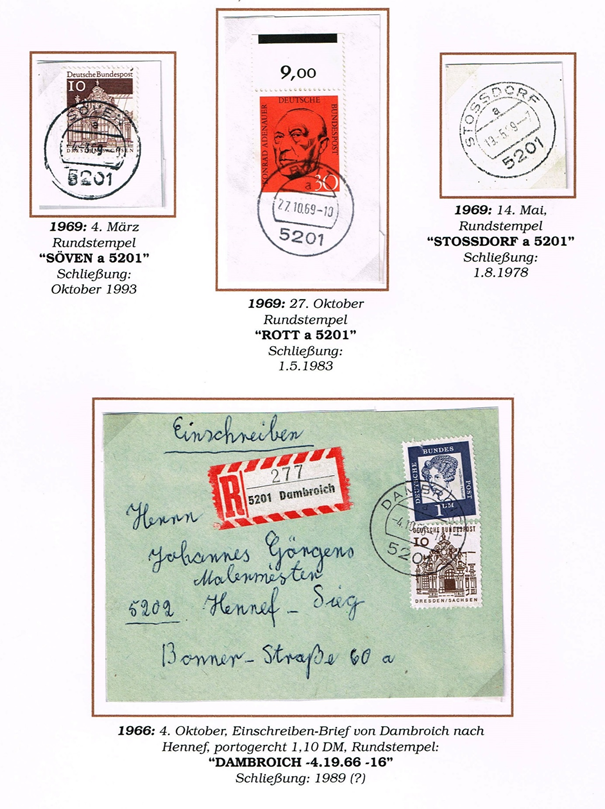 Deutsche Bundespost
10
SÖVEN
a
5201
1969: 4. März
Rundstempel
“SÖVEN a 5201”
Schließung:
Oktober 1993
9,00
DEUTSCHE
BUNDESPOST
KONRAD ADENAUER
30
a
27.10.69-10
5201
1969: 27. Oktober
Rundstempel
“ROTT a 5201”
Schließung:
1.5.1983
STOSSDORF
a
13.5.
5201
1969: 14. Mai,
Rundstempel
“STOSSDORF a 5201”
Schließung:
1.8.1978
Einschreiben
R
277
5201 Dambroich
DEUTSCHE
BUNDES
POST
1 DM
DEUTSCHE BUNDESPOST
10
DRESDEN/SACHSEN
-4.10.
520
Herrn
Johannes Görgens
Malermeister
5202 Hennef-Sieg
Bonner-Straße 60 a
1966: 4. Oktober, Einschreiben-Brief von Dambroich nach
Hennef, portogercht 1,10 DM, Rundstempel:
“DAMBROICH -4.19.66 -16”
Schließung: 1989 (?)